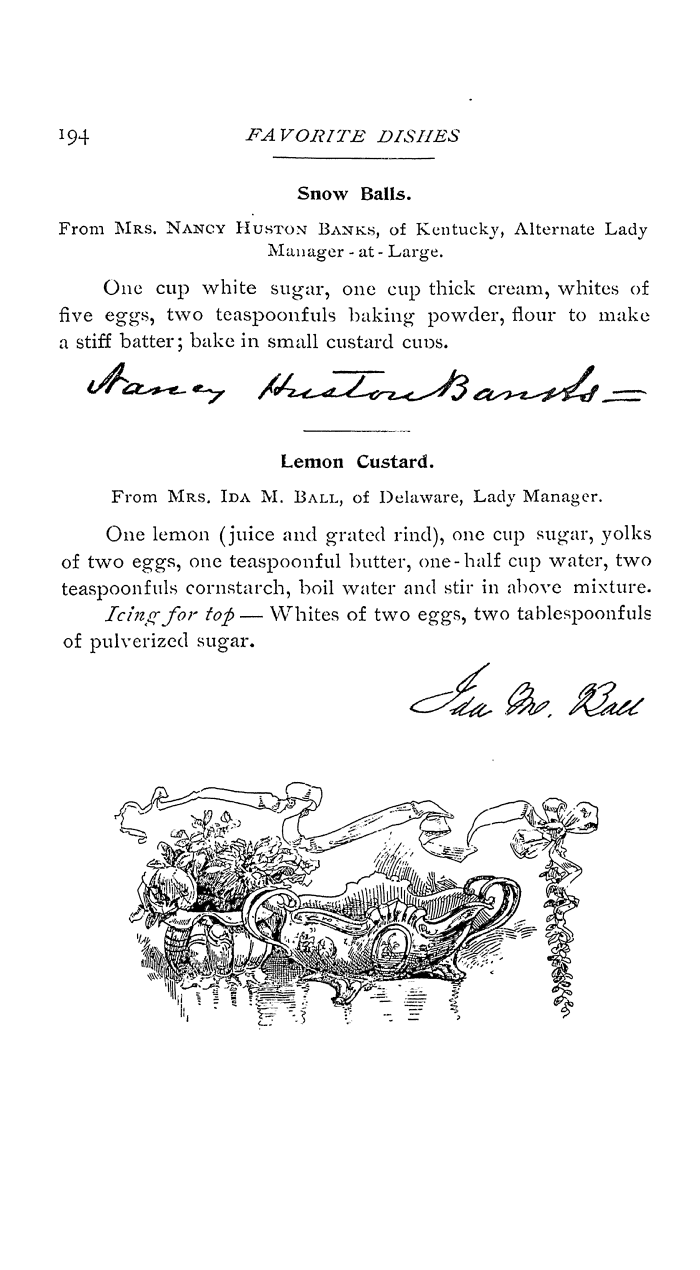 194 FAVORITE DISHES
Snow Balls.
From Mrs. Nancy Huston Banks, of Kentucky, Alternate Lady
Manager-at-Large.
One cup white sugar, one cup thick cream, whites of
five eggs, two teaspoonfuls baking powder, flour to make
a stiff batter; bake in small custard cups.
Nancy Huston Banks
Lemon Custard.
From Mrs. Ida M. Ball, of Delaware, Lady Manager.
One lemon (juice and grated rind), one cup sugar, yolks
of two eggs, one teaspoonful butter, one-half cup water, two
teaspoonfuls cornstarch, boil water and stir in above mixture.
Icing for top — Whites of two eggs, two tablespoonfuls
of pulverized sugar.
Ida M. Ball